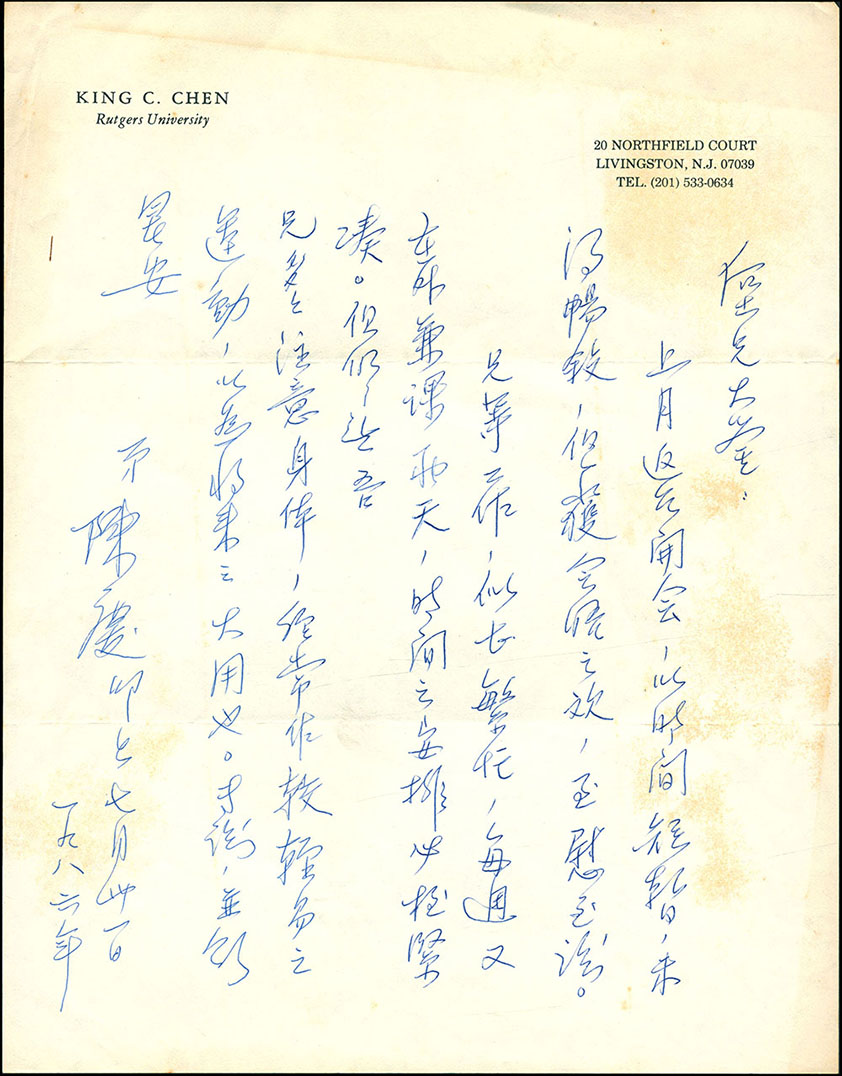 KING C. CHEN
Rutgers University
20 NORTHFIELD COURT
LIVINGSTON, N.J. 07039
TEL. (201) 533-0634
兄大鑒：
上月返台開會，以時間短暫，未
得暢敘，但獲會晤之歡，至慰至謝。
兄筆工作，似甚繁忙，每週又
在外兼課兩天，時間之安排必極緊
湊。但仍請吾
兄多多注意身体，經常作較輕易之
運動，以為將來之大用也。專謝，並頌
暑安
弟陳慶叩上七月卅一日
一九八六年